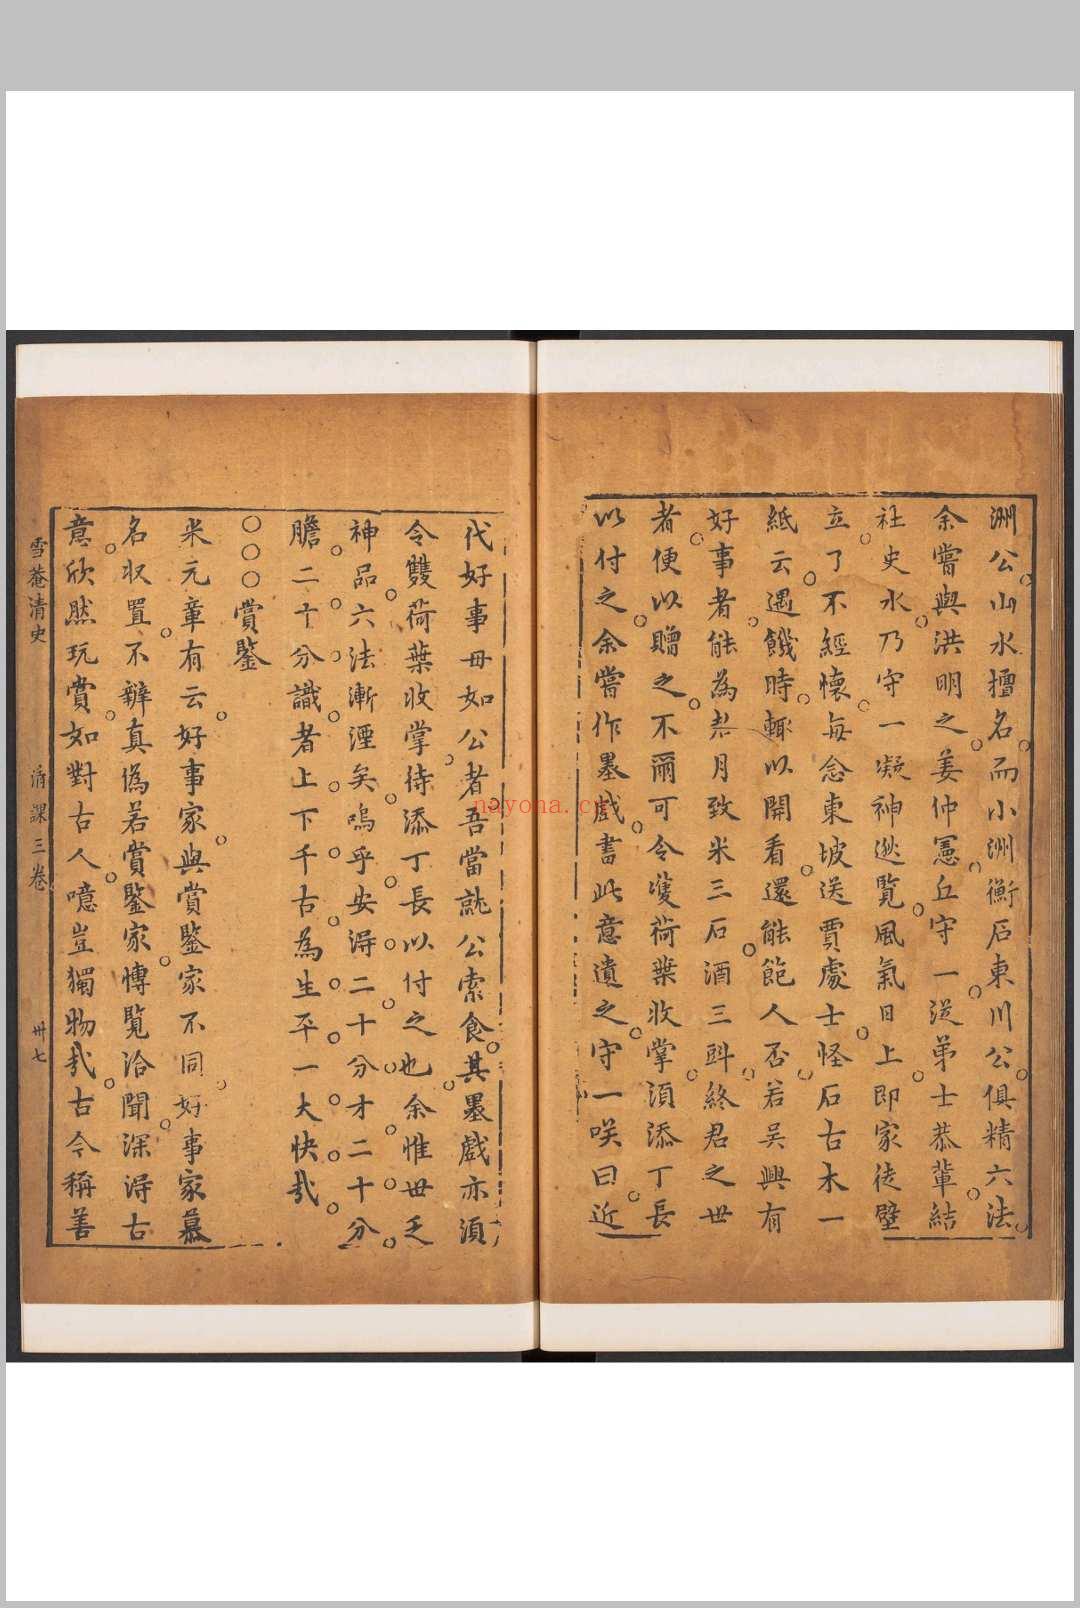 洲公山水擅名而小洲衡石東川公俱精六法
余嘗與洪明之姜仲憲丘守一從弟士恭輩結
社史水乃守一凝神遊覽風氣日上即家徒壁
立了不經懷每念東坡送賈處士怪石古木一
紙云遇饑時輙以開看還能飽人否若吴興有
好事者能為君月致米三石酒三㪷終君之世
者便以贈之不爾可令雙荷葉收掌湏添丁長
以付之余嘗作墨戲書此意遺之守一咲曰近
代好事毋如公者吾當就公索食其墨戲亦湏
令雙荷葉收掌待添丁長以付之也余惟世乏
神品六法漸湮矣嗚乎安得二十分才二十分
膽二十分識者上下千古為生平一大快哉
○○○賞鑒
米元章有云好事家與賞鑒家不同好事家慕
名収置不辨真偽若賞鑒家博覧洽聞深得古
意欣然玩賞如對古人噫豈獨物哉古今稱善
雪菴清史
清課三卷
卅七
nayona.cn